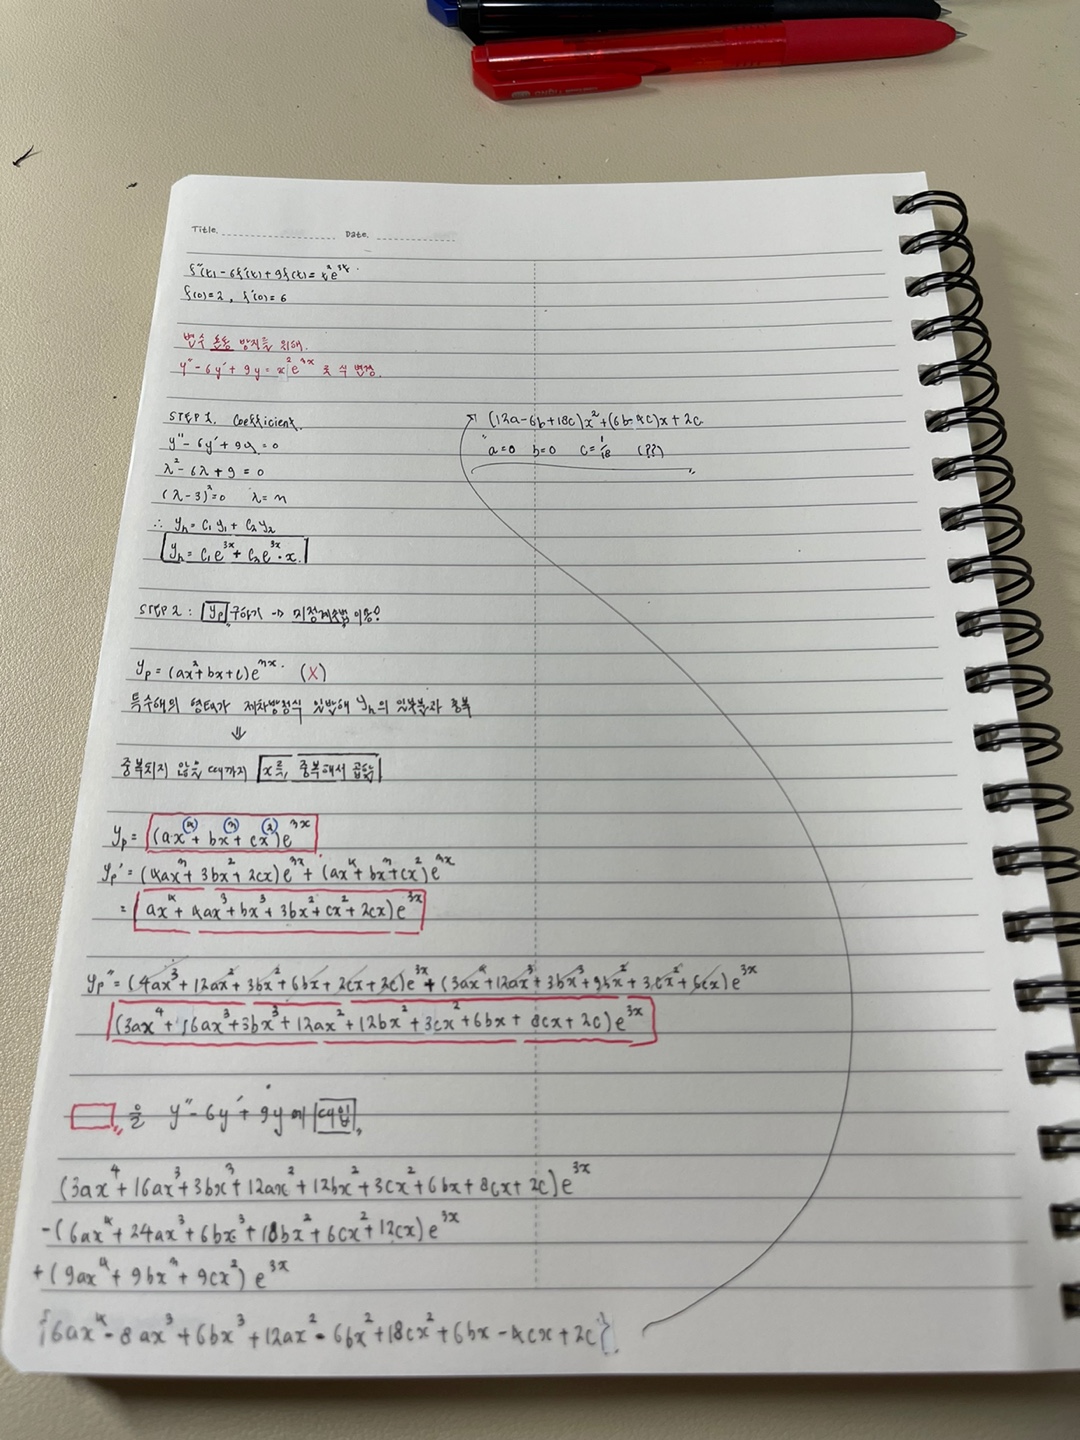 Title. Date.
f''(t) - 6f'(t) + 9f(t) = t²e³ᵗ.
f(0)=2, f'(0)=6
변수 혼동 방지를 위해.
y'' - 6y' + 9y = x²e³ˣ 로 식 변경.
STEP 1. Coefficient.
y'' - 6y' + 9y = 0
λ² - 6λ + 9 = 0
(λ-3)² = 0 λ = 3
∴ yₕ = C₁y₁ + C₂y₂
yₕ = C₁e³ˣ + C₂e³ˣ·x.
(12a-6b+18c)x² + (6b-4c)x + 2c
a=0 b=0 c=1/18 (??)
STEP 2 : yₚ 구하기 → 미정계수법 이용!
yₚ = (ax²+bx+c)e³ˣ. (X)
특수해의 형태가 제차방정식 일반해 yₕ의 일부분과 중복
⇓
중복되지 않을 때까지 x를, 중복해서 곱함
yₚ = (ax⁴ + bx³ + cx²)e³ˣ
yₚ' = (4ax³ + 3bx² + 2cx)e³ˣ + (ax⁴ + bx³ + cx²)e³ˣ
= (ax⁴ + 4ax³ + bx³ + 3bx² + cx² + 2cx)e³ˣ
yₚ'' = (4ax³ + 12ax² + 3bx² + 6bx + 2cx + 2c)e³ˣ + (3ax⁴ + 12ax³ + 3bx³ + 9bx² + 3cx² + 6cx)e³ˣ
(3ax⁴ + 16ax³ + 3bx³ + 12ax² + 12bx² + 3cx² + 6bx + 8cx + 2c)e³ˣ
을 y'' - 6y' + 9y 에 대입,
(3ax⁴ + 16ax³ + 3bx³ + 12ax² + 12bx² + 3cx² + 6bx + 8cx + 2c)e³ˣ
-(6ax⁴ + 24ax³ + 6bx³ + 18bx² + 6cx² + 12cx)e³ˣ
+(9ax⁴ + 9bx³ + 9cx²)e³ˣ
{6ax⁴ - 8ax³ + 6bx³ + 12ax² - 6bx² + 18cx² + 6bx - 4cx + 2c}